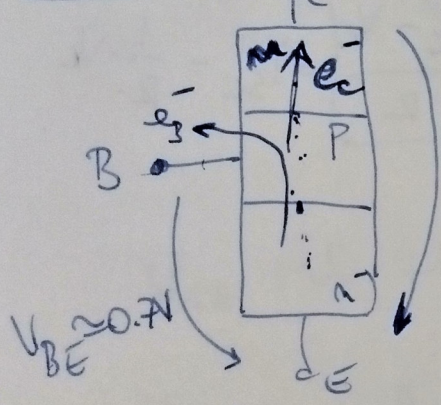 n
e⁻c
e⁻B
P
B
n
V_BE ≃ 0.7V
E